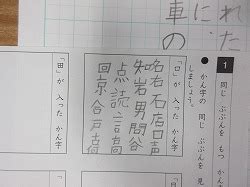 れた
に、
車の
1 同じ ぶぶんを もつ かん字
● かん字の 同じ ぶぶんを 見
しましょう。
「口」が 入った かん字
石店口声
岩男問谷
点読言高
回京合戸高
「田」が 入った かん字